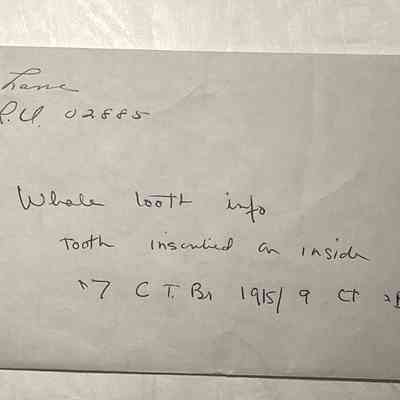 Lane
R.I. 02885
Whale tooth info
Tooth inscribed on inside
"7 C T. Br 1915/ 9 Ct